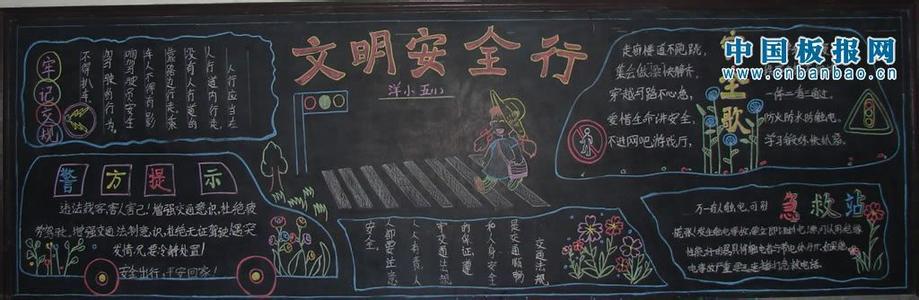 文明安全行
洋小五(2)
牢记交规
人行应当在
人行道内行走
没有人行道的
靠路边行走乘
车人不得有影
响驾驶员安全
驾驶的行为。
警方提示
违法载客,害人害己!增强交通意识,杜绝疲
劳驾驶,增强交通法制意识,杜绝无证驾驶遇突
发情况,要冷静处置!
安全出行,平安回家!
交通法规
是交通顺畅
和人身安全
的保证遵
守交通法规
人人有责人
人都要注意
安全
安全歌
走廊楼道不跑跳,
集会做操快静齐,
穿越马路不心急,
爱惜生命讲安全,
不进网吧游戏厅,
一停二看三通过,
防火防水防触电,
中国板报网
www.cnbanbao.cn
急救站
万一有人触电,可别